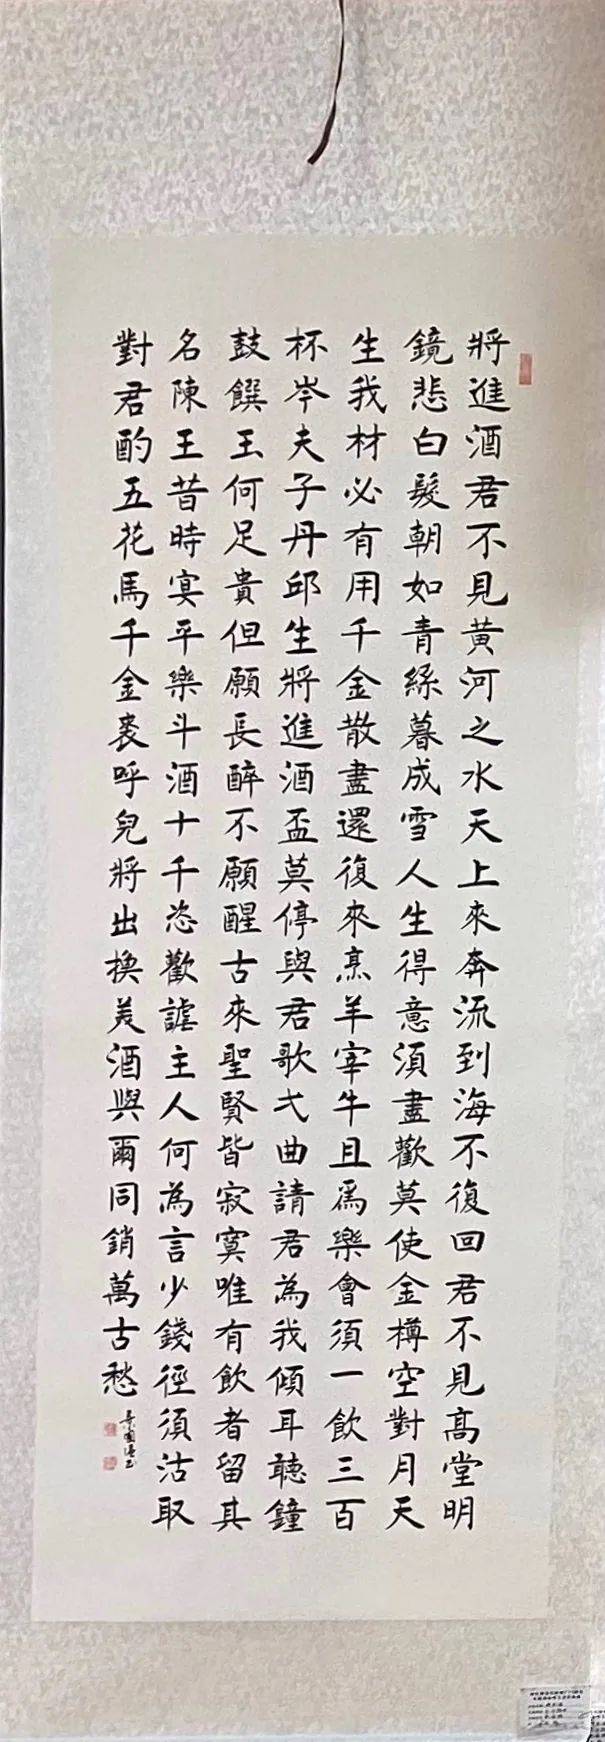 將進酒君不見黃河之水天上來奔流到海不復回君不見高堂明
鏡悲白髮朝如青絲暮成雪人生得意須盡歡莫使金樽空對月天
生我材必有用千金散盡還復來烹羊宰牛且為樂會須一飲三百
杯岑夫子丹邱生將進酒盃莫停與君歌弌曲請君為我傾耳聽鐘
鼓饌玉何足貴但願長醉不願醒古來聖賢皆寂寞唯有飲者留其
名陳王昔時宴平樂斗酒十千恣歡謔主人何為言少錢徑須沽取
對君酌五花馬千金裘呼兒將出換美酒與爾同銷萬古愁